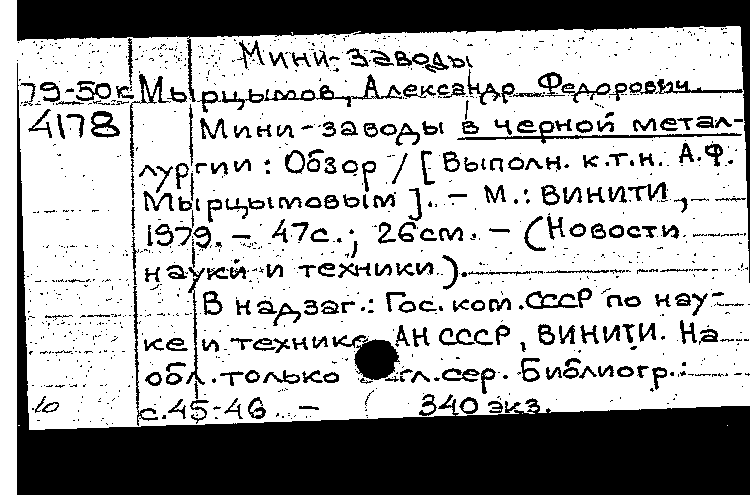 Мини-заводы
79-50к Мырцымов, Александр Федорович.
4178 Мини-заводы в черной метал-
лургии : Обзор / [ Выполн. к.т.н. А.Ф.
Мырцымовым ]. - М.: ВИНИТИ,
1979. - 47с.; 26см. - (Новости
науки и техники).
В надзаг.: Гос. ком. СССР по нау-
ке и технике, АН СССР, ВИНИТИ. На
обл. только гл. сер. Библиогр.:
10 с.45-46. - 340 экз.